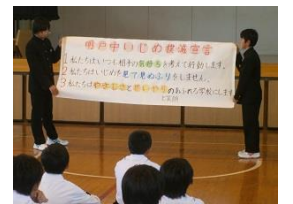 中いじめ撲滅宣言
1 私たちはいつも相手の気持ちを考えて行動します。
2 私たちはいじめを見て見ぬふりをしません。
3 私たちはやさしさと思いやりのあふれる学校にします